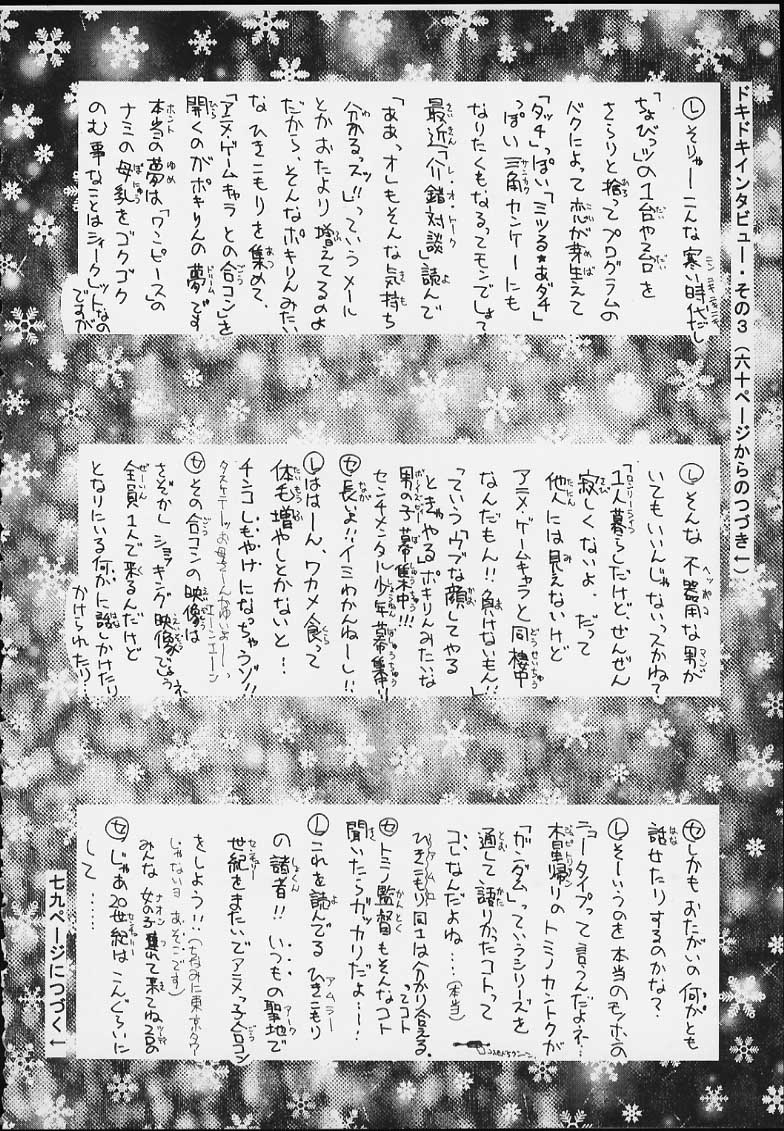 ドキドキインタビュー・その3（六十ページからのつづき←）
Ⓛそりゃーこんな寒い時代だし
「ちょびっツ」の1台や2台を
さらりと捨ってプログラムの
バグによって恋が芽生えて
「タッチ」っぽい「ミツる★あダチ」
っぽい三角カンケーにも
なりたくもなるってモンでしょ?
最近「介錯対談」読んで
「ああっオレもそんな気持ち
分かるっスッ!!」っていうメール
とかおたより増えてるのよ
だから、そんなポキりんみたい
なひきこもりを集めて、
「アニメ・ゲームキャラとの合コン」を
開くのがポキりんの夢です
本当の夢は「ワンピース」の
ナミの母乳をゴクゴク
のむ事なことはシィークレットなの
ですが
Ⓛそんな不器用な男が
いてもいいんじゃないってかね?
1人暮らしだけど、ぜんぜん
寂しくないよ。だって
他人には見えないけど
アニメ・ゲームキャラと同棲中
なんだもん!!負けないもん!!」
っていう「ウブな顔してやる
ときゃやる」ポキりんみたいな
男の子募集中!!!
センチメンタル少年募集中!!
Ⓢ長いよ!!イミわかんねーし!!
Ⓛははーん、ワカメ食って
体毛増やしとかないと!!
チンコしもやけになっちゃうゾ!!
Ⓢその合コンの映像は
さぞかしショッキング映像でしょうネ
全員1人で来るんだけど
となりにいる何かに話しかけたり
かけられたり…
Ⓢしかもおたがいの何かとも
話せたりするのかな?
Ⓛそーいうのを本当のモノホンの
ニュータイプって言うんだよネ…
木星帰りのトミノカントクが
「ガンダム」っていうシリーズを
通して語りたかったコトって
コレなんだよね…(本当)
ひきこもり同士は分かり合える。
ってコト
Ⓢトミノ監督もそんなコト
聞いたらガッカリだよ…!
Ⓛこれを読んでるひきこもり
の諸君!!いつもの聖地で
世紀をまたいでアニメっ子合コン
をしよう!!(ちなみに東京タワー
じゃないヨ あそこです)
みんな女の子連れて来てね
Ⓢじゃあ20世紀はこんぐらいに
して……
七九ページにつづく←